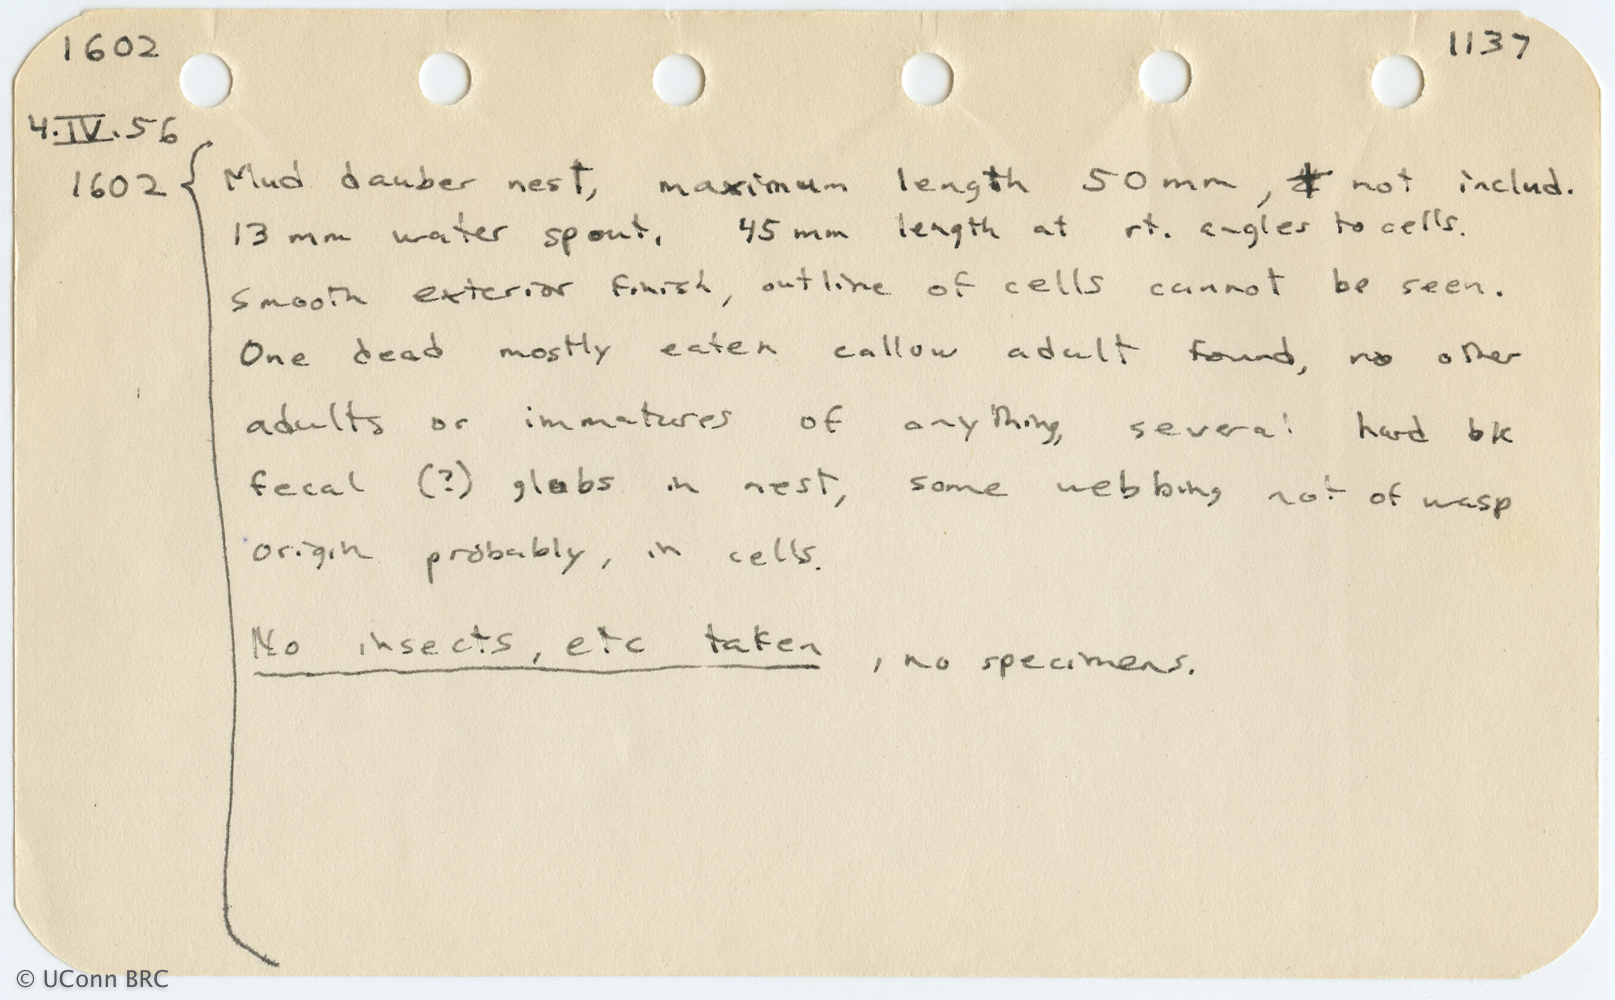 1602 1137
4.IV.56
1602 { Mud dauber nest, maximum length 50 mm, not includ.
13 mm water spout. 45 mm length at rt. angles to cells.
Smooth exterior finish, outline of cells cannot be seen.
One dead mostly eaten callow adult found, no other
adults or immatures of anything, several hard bk
fecal (?) globs in nest, some webbing not of wasp
origin probably, in cells.
No insects, etc taken, no specimens.
© UConn BRC